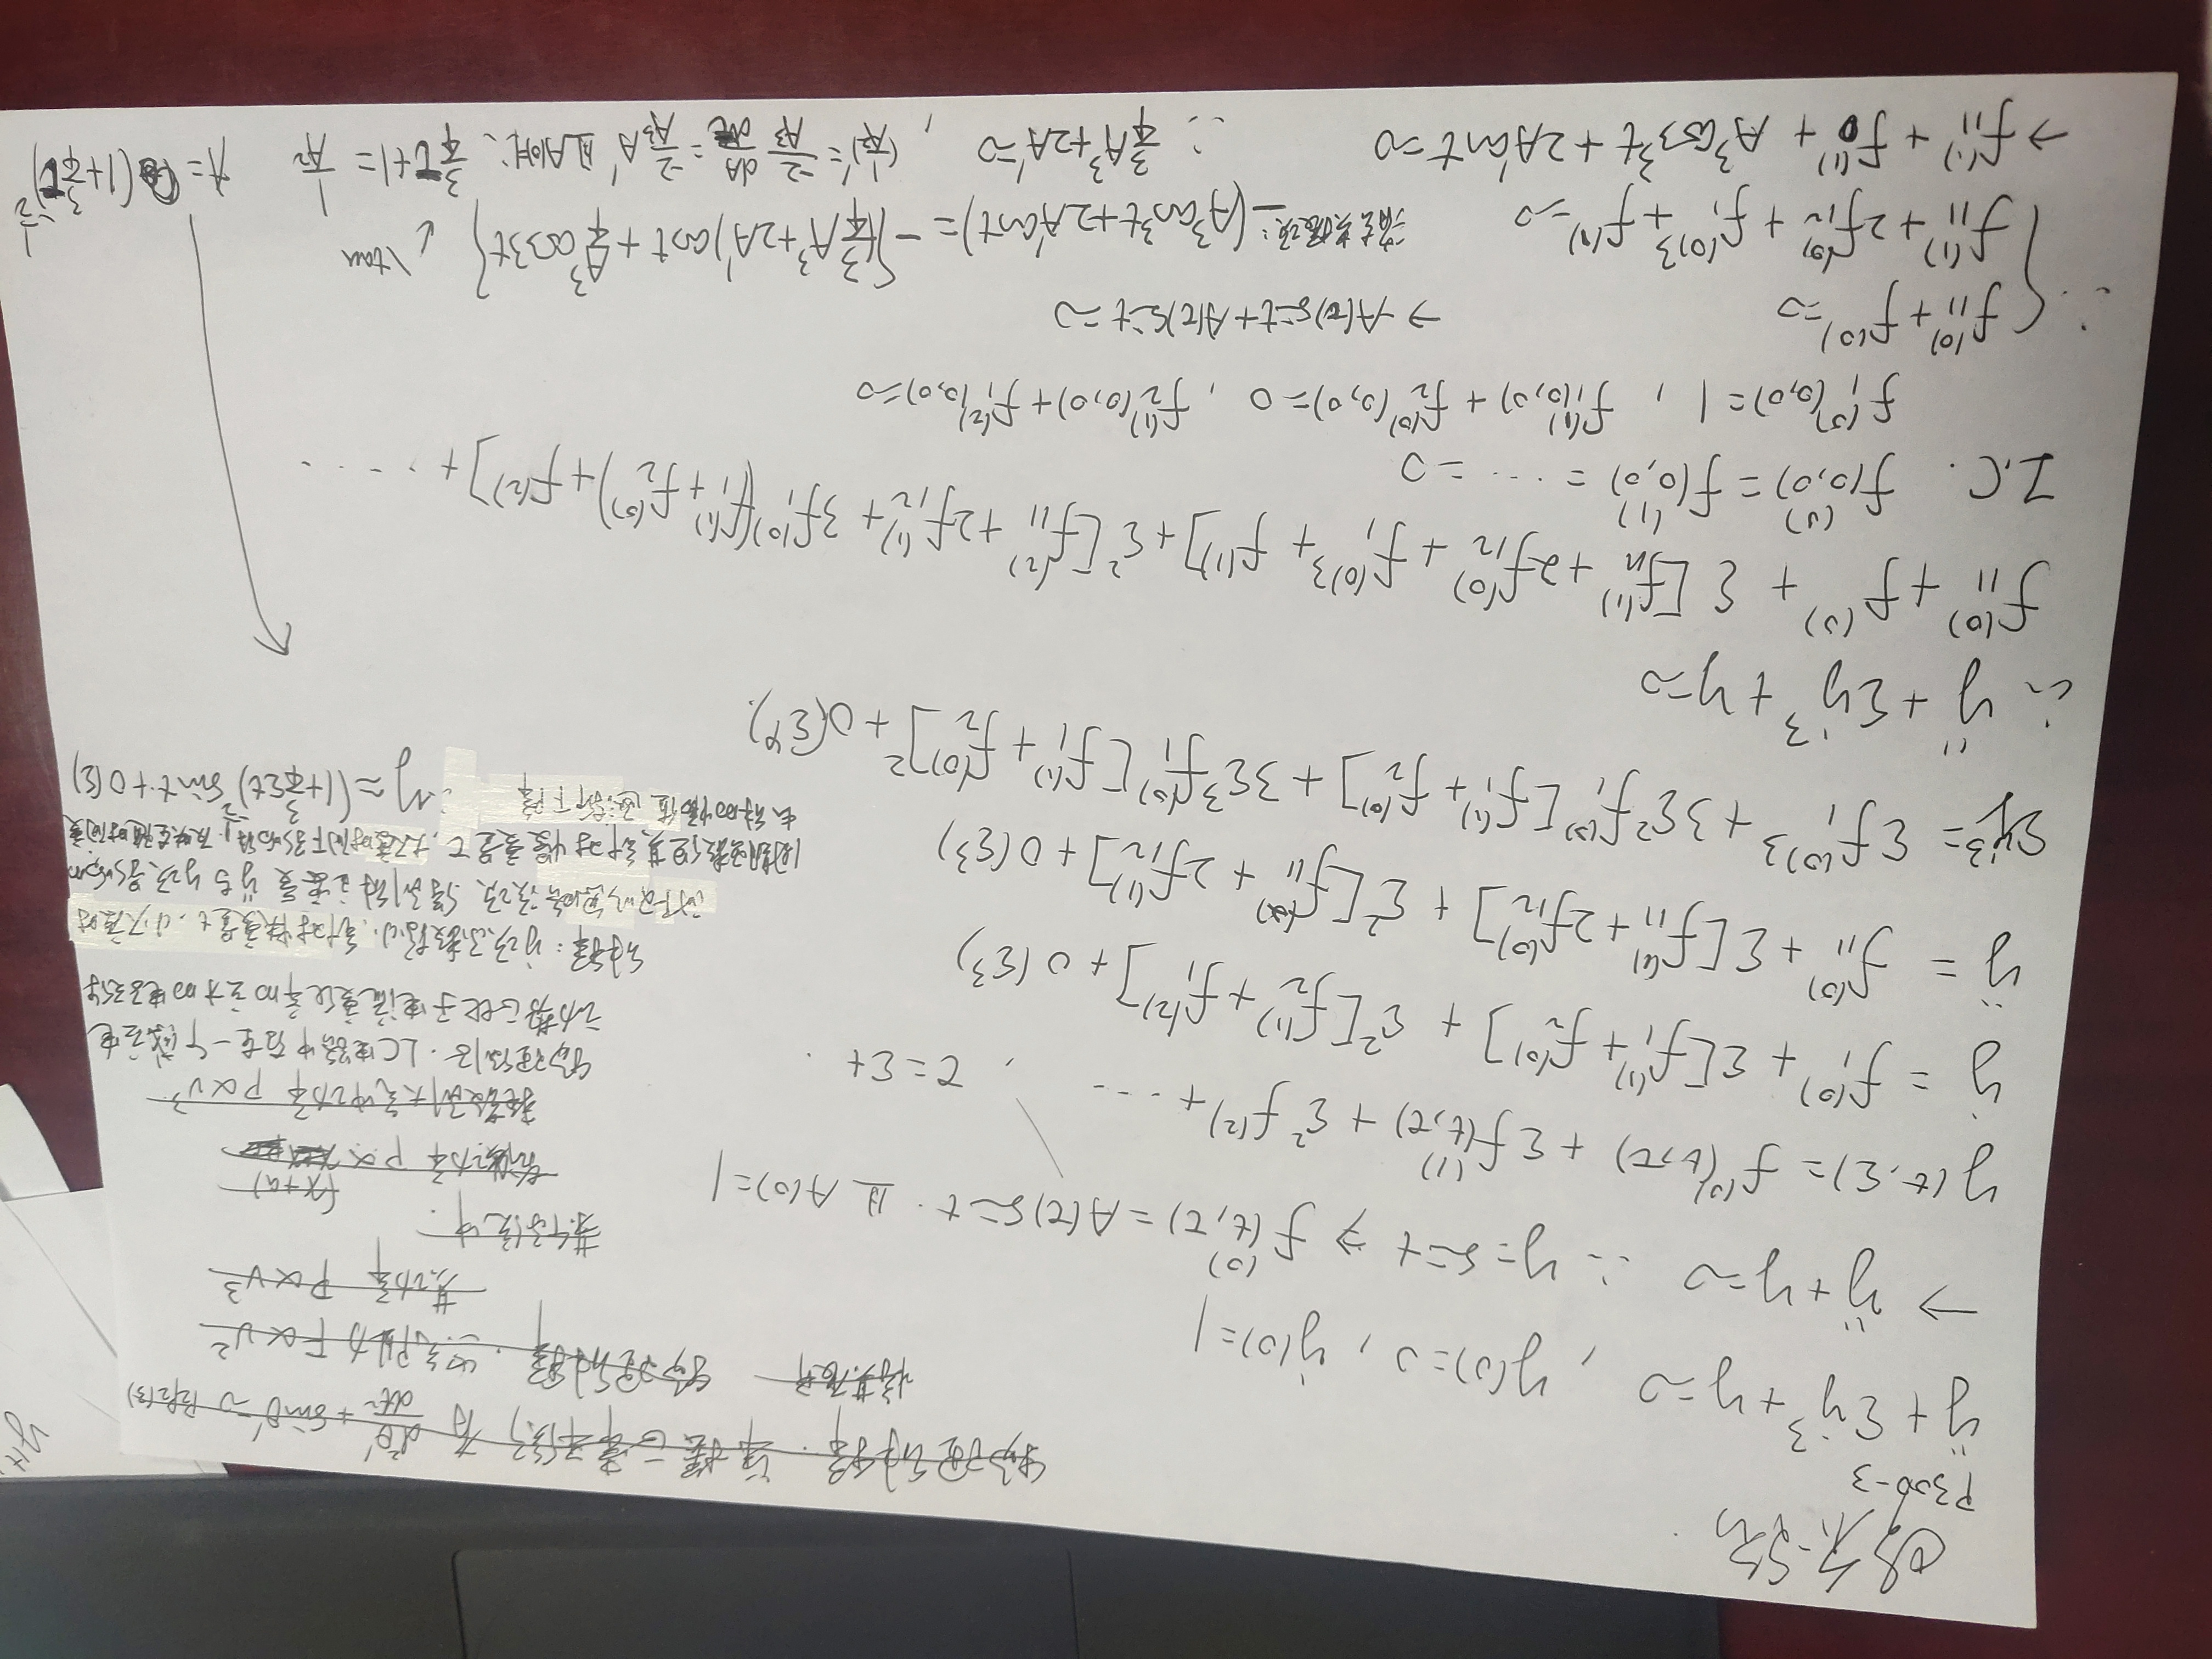 P300-3
ÿ + εẏ³ + y = 0 , y(0)=0 , ẏ(0)=1
→ ÿ + y = 0 ∴ y = sin t ⇒ f⁽⁰⁾(t,τ) = A(τ) sin t. 且 A(0)=1
y(t,ε) = f⁽⁰⁾(t,τ) + εf⁽¹⁾(t,τ) + ε² f⁽²⁾ + ⋯ , τ=εt.
ẏ = f₁⁽⁰⁾ + ε[f₁⁽¹⁾ + f₂⁽⁰⁾] + ε²[f₂⁽¹⁾ + f₁⁽²⁾] + O(ε³)
ÿ = f₁₁⁽⁰⁾ + ε[f₁₁⁽¹⁾ + 2f₁₂⁽⁰⁾] + ε²[f₁₁⁽²⁾ + 2f₁₂⁽¹⁾] + O(ε³)
εẏ³ = εf₁⁽⁰⁾³ + 3ε²f₁⁽⁰⁾[f₁⁽¹⁾ + f₂⁽⁰⁾] + 3ε³f₁⁽⁰⁾[f₁⁽¹⁾ + f₂⁽⁰⁾]² + O(ε⁴).
∴ ÿ + εẏ³ + y = 0
f₁₁⁽⁰⁾ + f⁽⁰⁾ + ε[f₁₁⁽¹⁾ + 2f₁₂⁽⁰⁾ + f₁⁽⁰⁾³ + f⁽¹⁾] + ε²[f₁₁⁽²⁾ + 2f₁₂⁽¹⁾ + 3f₁⁽⁰⁾(f₁⁽¹⁾ + f₂⁽⁰⁾) + f⁽²⁾] + ⋯
I.C. f⁽⁰⁾(0,0) = f⁽¹⁾(0,0) = ⋯ = 0
f₁⁽⁰⁾(0,0)=1 , f₁⁽¹⁾(0,0) + f₂⁽⁰⁾(0,0)=0 , f₂⁽¹⁾(0,0) + f₁⁽²⁾(0,0)=0
∴ { f₁₁⁽⁰⁾ + f⁽⁰⁾ = 0 → -A(τ) sin t + A(τ) sin t = 0
f₁₁⁽¹⁾ + 2f₁₂⁽⁰⁾ + f₁⁽⁰⁾³ + f⁽¹⁾ = 0 消去共振项: -(A³cos³t + 2A'cos t) = -{(3/4 A³ + 2A')cos t + A³/4 cos3t} \tau
→ f₁₁⁽¹⁾ + f⁽¹⁾ + A³cos³t + 2A'cos t = 0 ∴ 3/4 A³ + 2A' = 0 , (1/A²)' = -2/A³ dA/dτ = -2/A³ A' 且A(0)=1 ∴ 3/4 τ + 1 = 1/A² A = (1 + 3/4 τ)^(-1/2)
物理解释. 单摆正常平衡 有 d²θ'/dt² + sinθ' = 0 P2P2(3)
将其展开 物理解释. 空气阻力 F∝v²
其功率 P∝v³
某个系统中.
功率 P∝ f(x+a)
耗散到大气中功率 P∝v³
物理例子. LC电路中存在一个感应电
动势正比于电流变化率的立方的电子元件
解释: ẏ项系数极小. 针对快变量t, 小尺度时
间下可以忽略该项, 得到解主要受 ÿ与y项影响的
周期函数但其针对慢变量τ, 大尺度时间下影响解, 反映在随时间变
去解的幅值逐渐下降 ∴ y ≈ (1 + 3/4 εt)^(-1/2) sin t + O(ε)